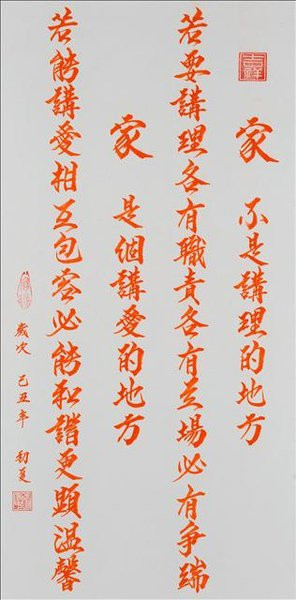 家 不是講理的地方
若要講理各有職責各有立場必有爭端
家 是個講愛的地方
若能講愛相互包容必能和諧更顯溫馨
歲次 己丑年 初夏
吉祥